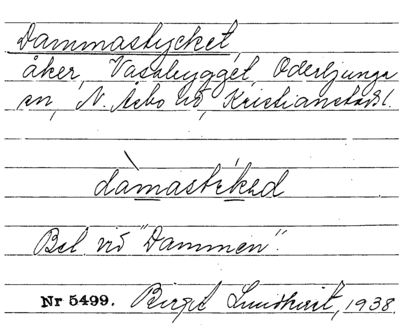 Dammastycket,
åker, Vasabygget, Oderljunga
sn, N. Åsbo hd, Kristianstads l.
dàmastékəd
Bel. vid "Dammen".
Nr 5499. Birgit Lundkvist, 1938.